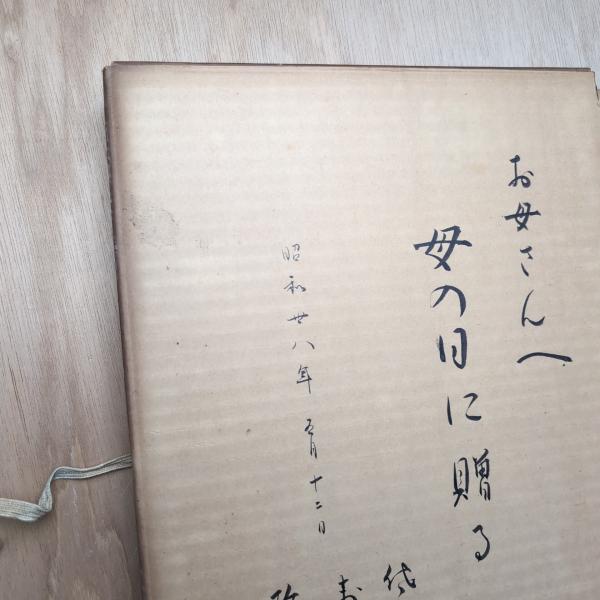 お母さんへ
母の日に贈る
昭和卅八年 五月十二日